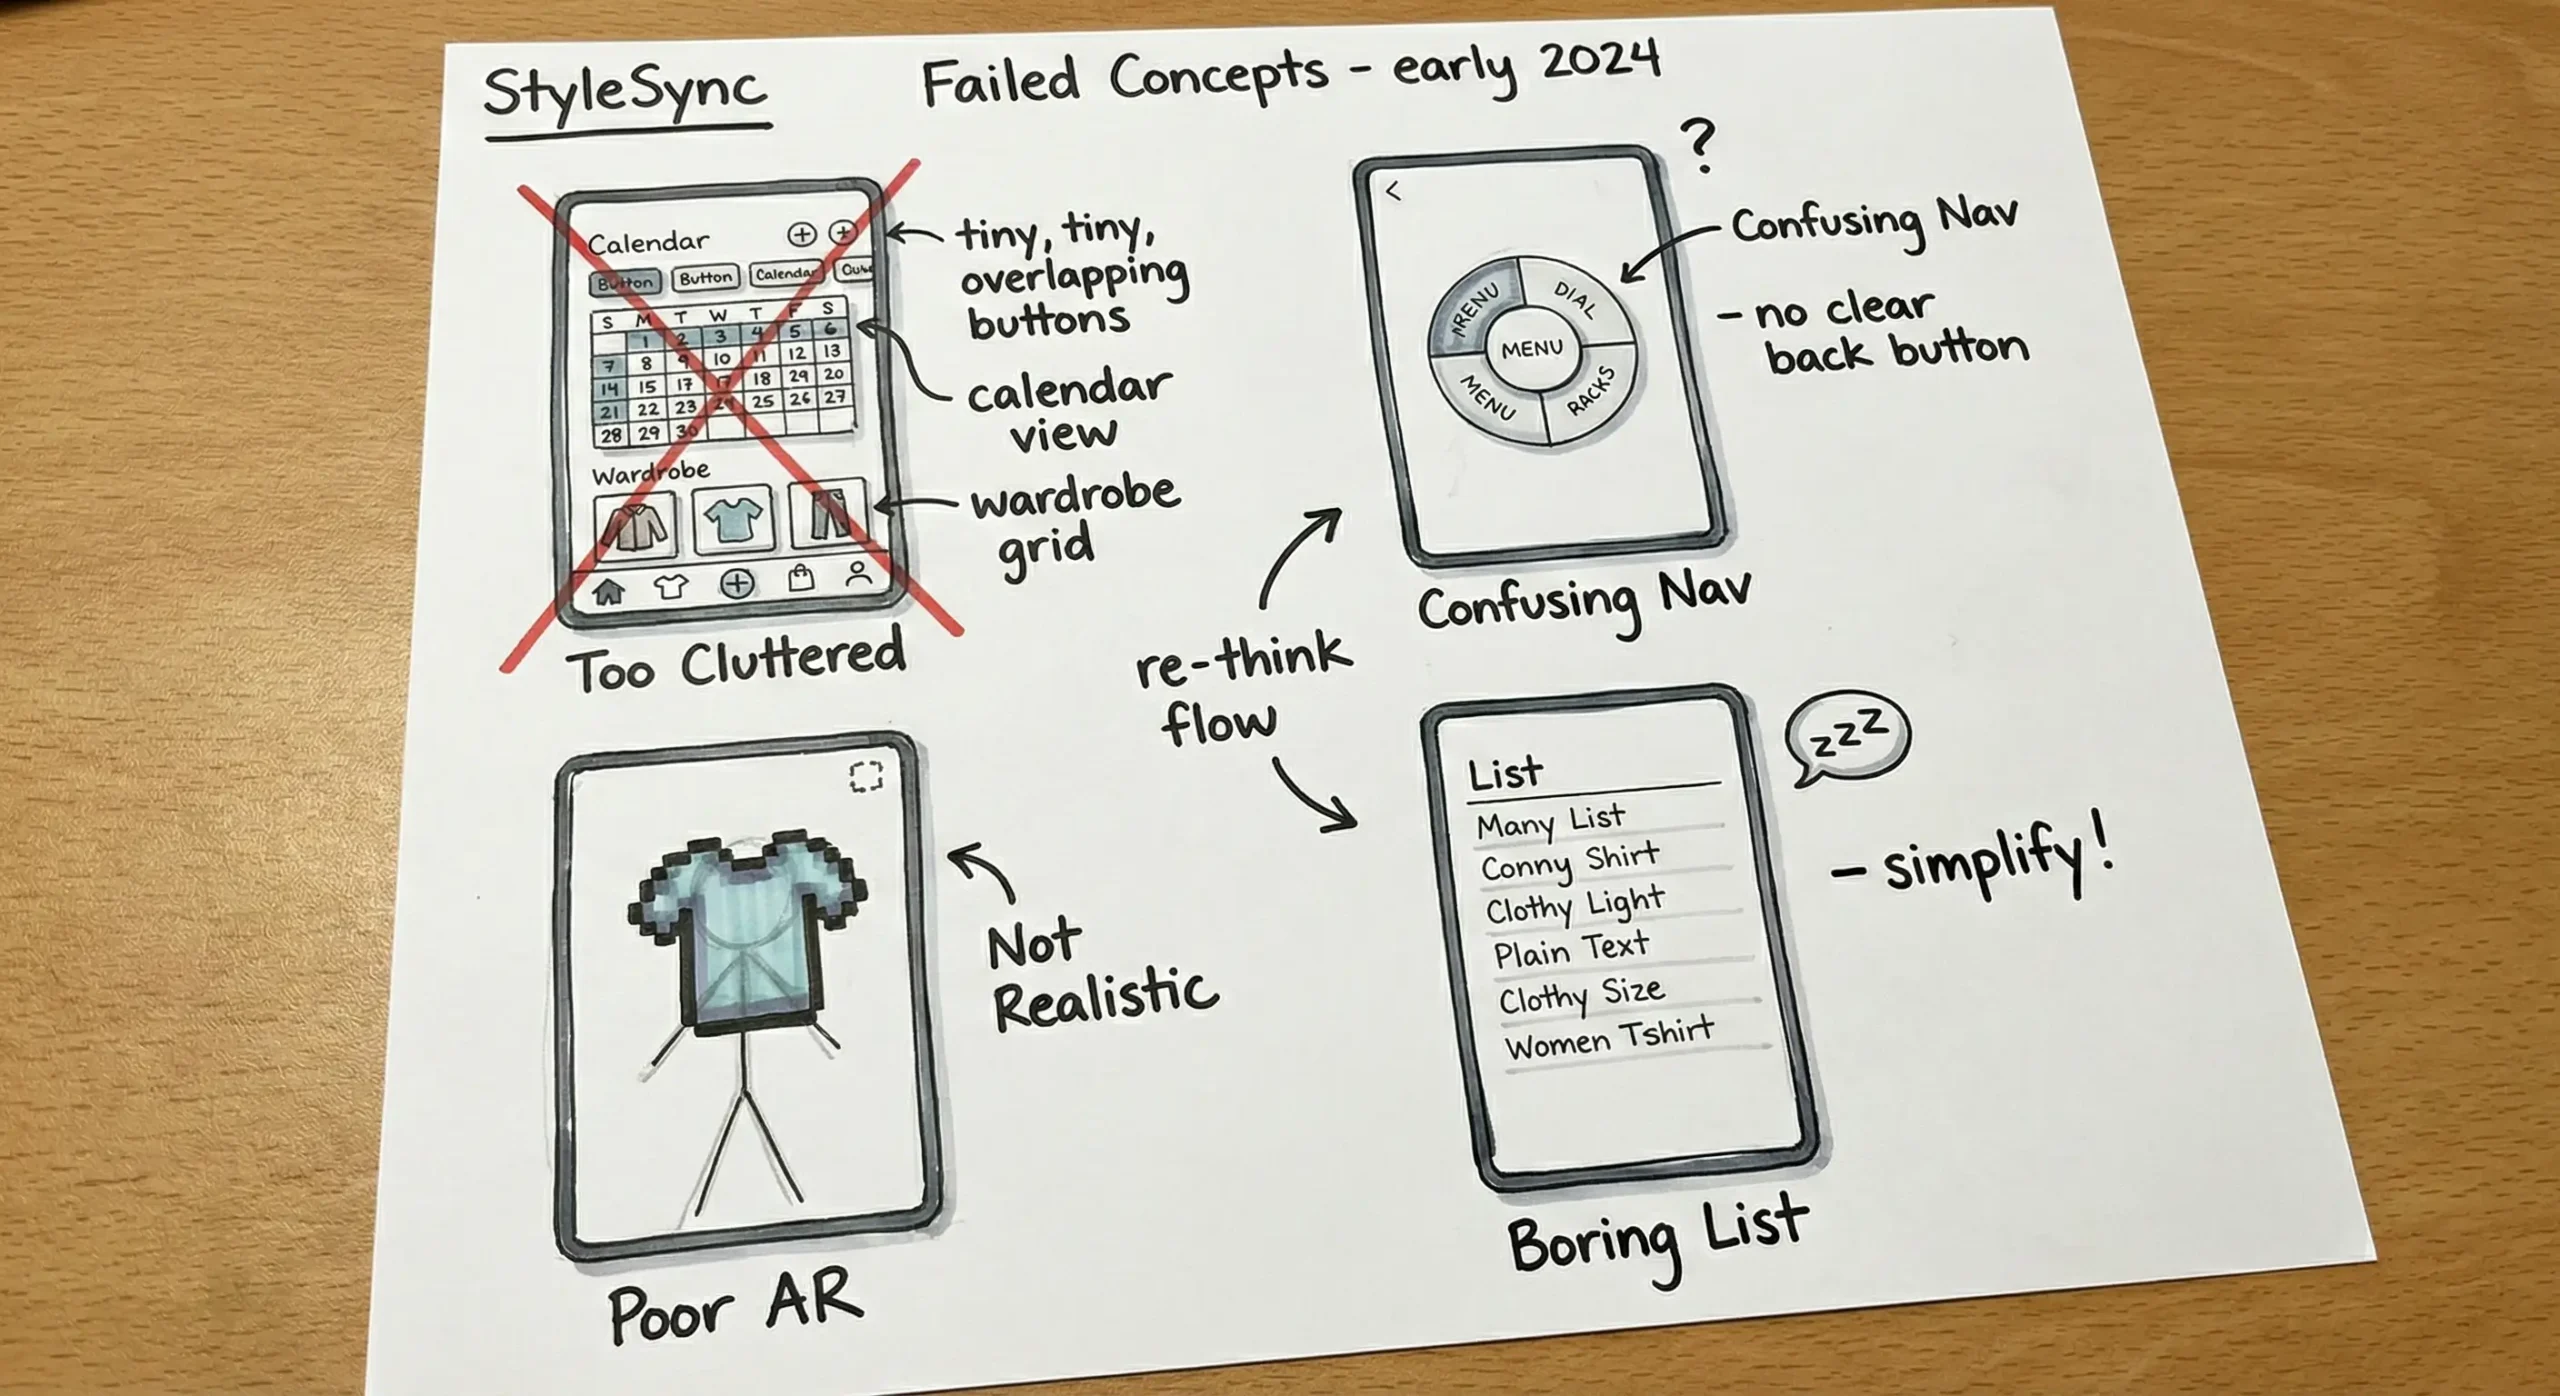 StyleSync
Failed Concepts - early 2024
Calendar
Button Button Calendar
S M T W T F S
1 2 3 4 5 6
7 8 9 10 11 12 13
14 15 17 17 18 29 20
21 22 23 24 25 26 27
28 29 30
Wardrobe
Too Cluttered
tiny, tiny,
overlapping
buttons
calendar
view
wardrobe
grid
?
<
DIAL
MENU
MENU
RACKS
Confusing Nav
- no clear
back button
Confusing Nav
re-think
flow
Not
Realistic
Poor AR
List
Many List
Conny Shirt
Clothy Light
Plain Text
Clothy Size
Women Tshirt
zzz
- simplify!
Boring List